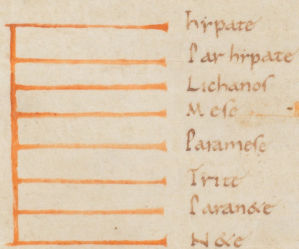 hypate
Par hypate
Lichanos
Mese
Paramese
Trite
Paran&e
N&e